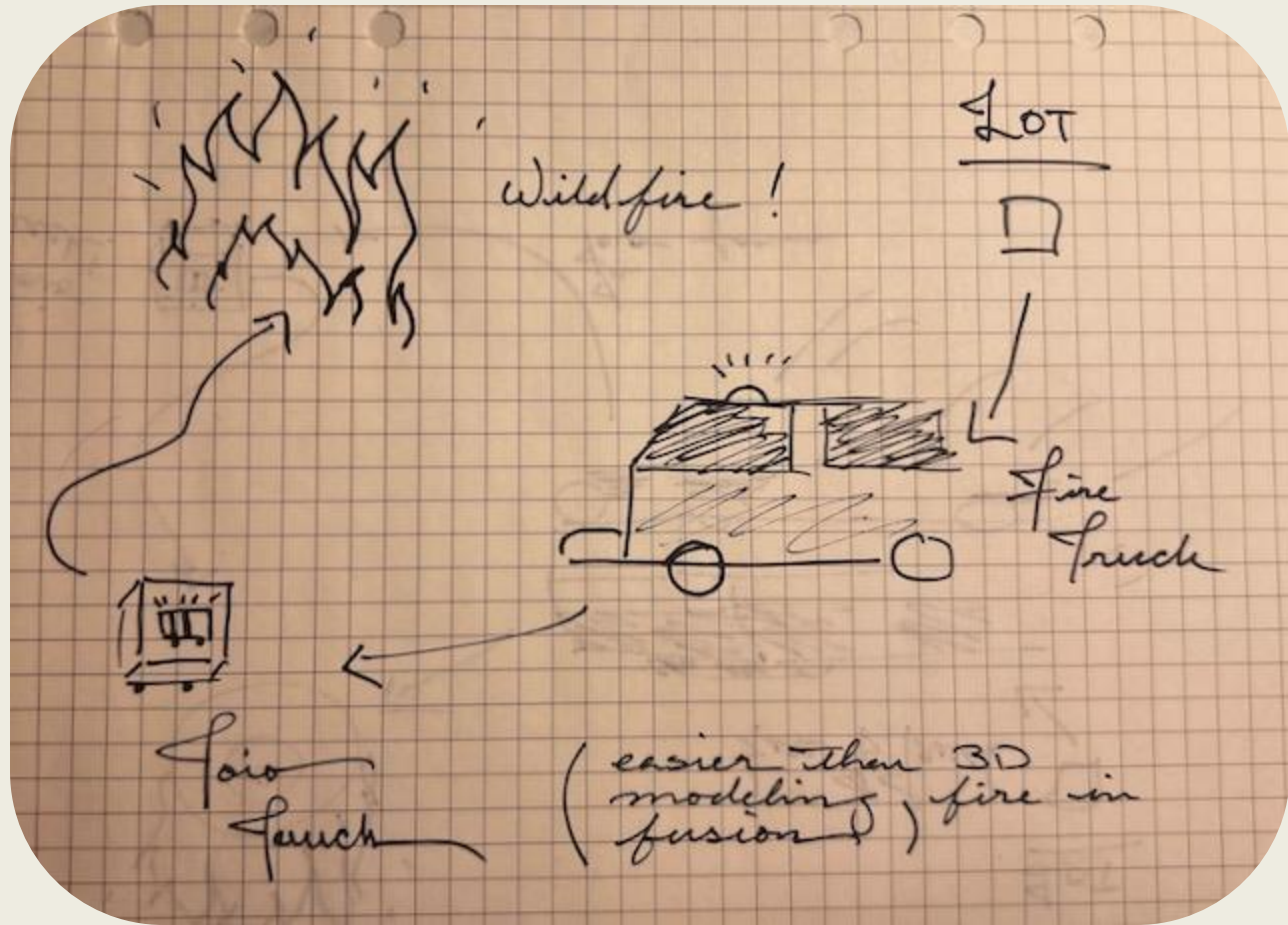 Wildfire !
LOT
Fire
Truck
Toio
Truck
( easier than 3D
modeling fire in
fusion )